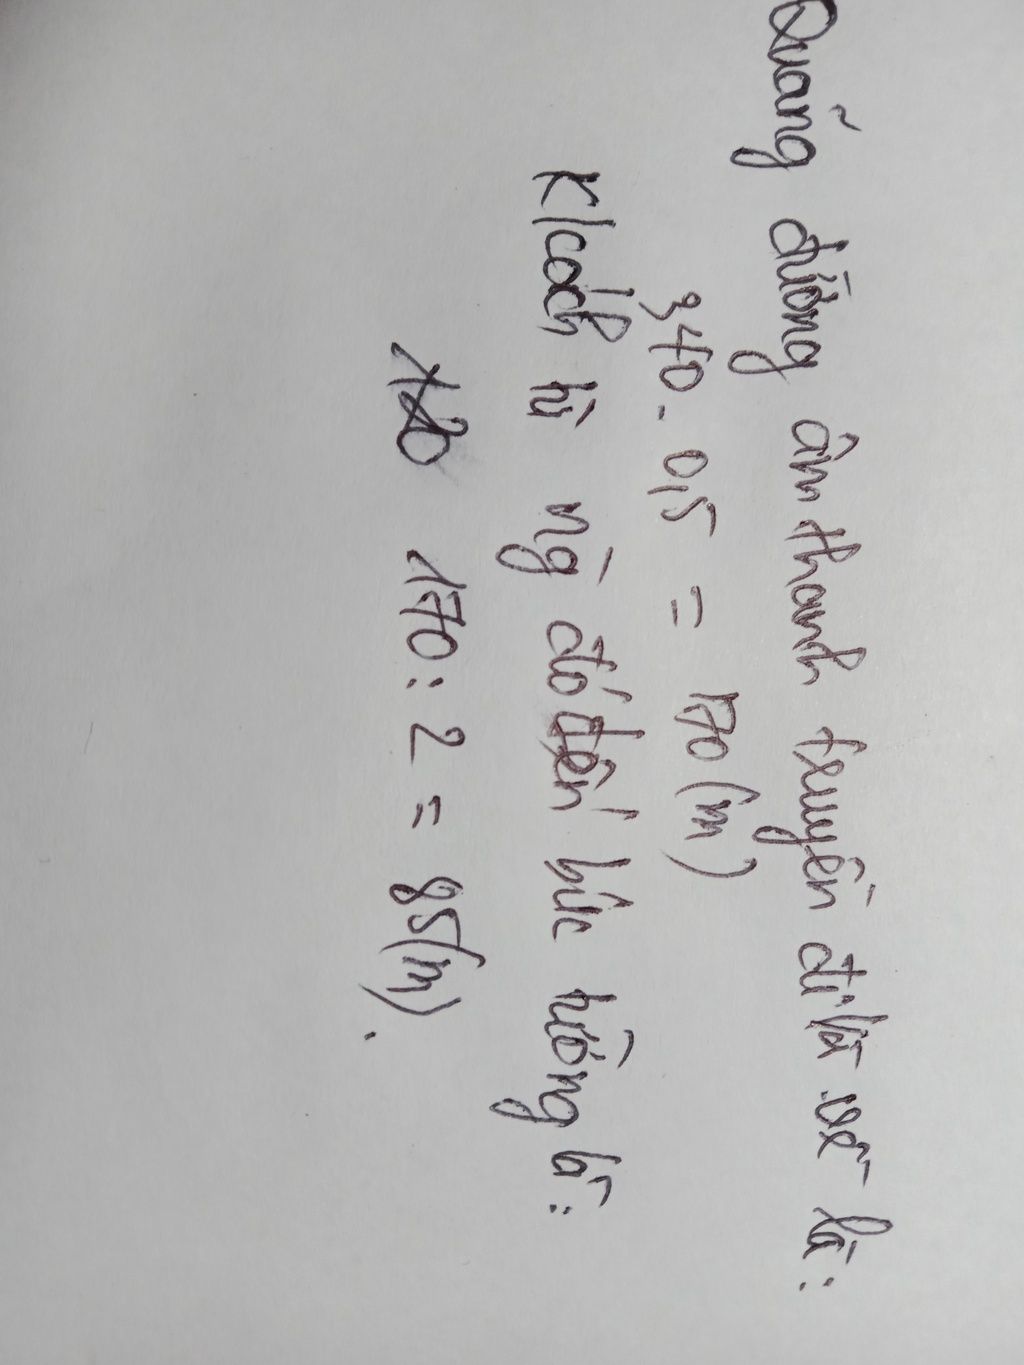 Quãng đường âm thanh truyền đi và về là:
340. 0,5 = 170 (m)
K/cách từ ng` đó đến bức tường là:
170 : 2 = 85 (m).